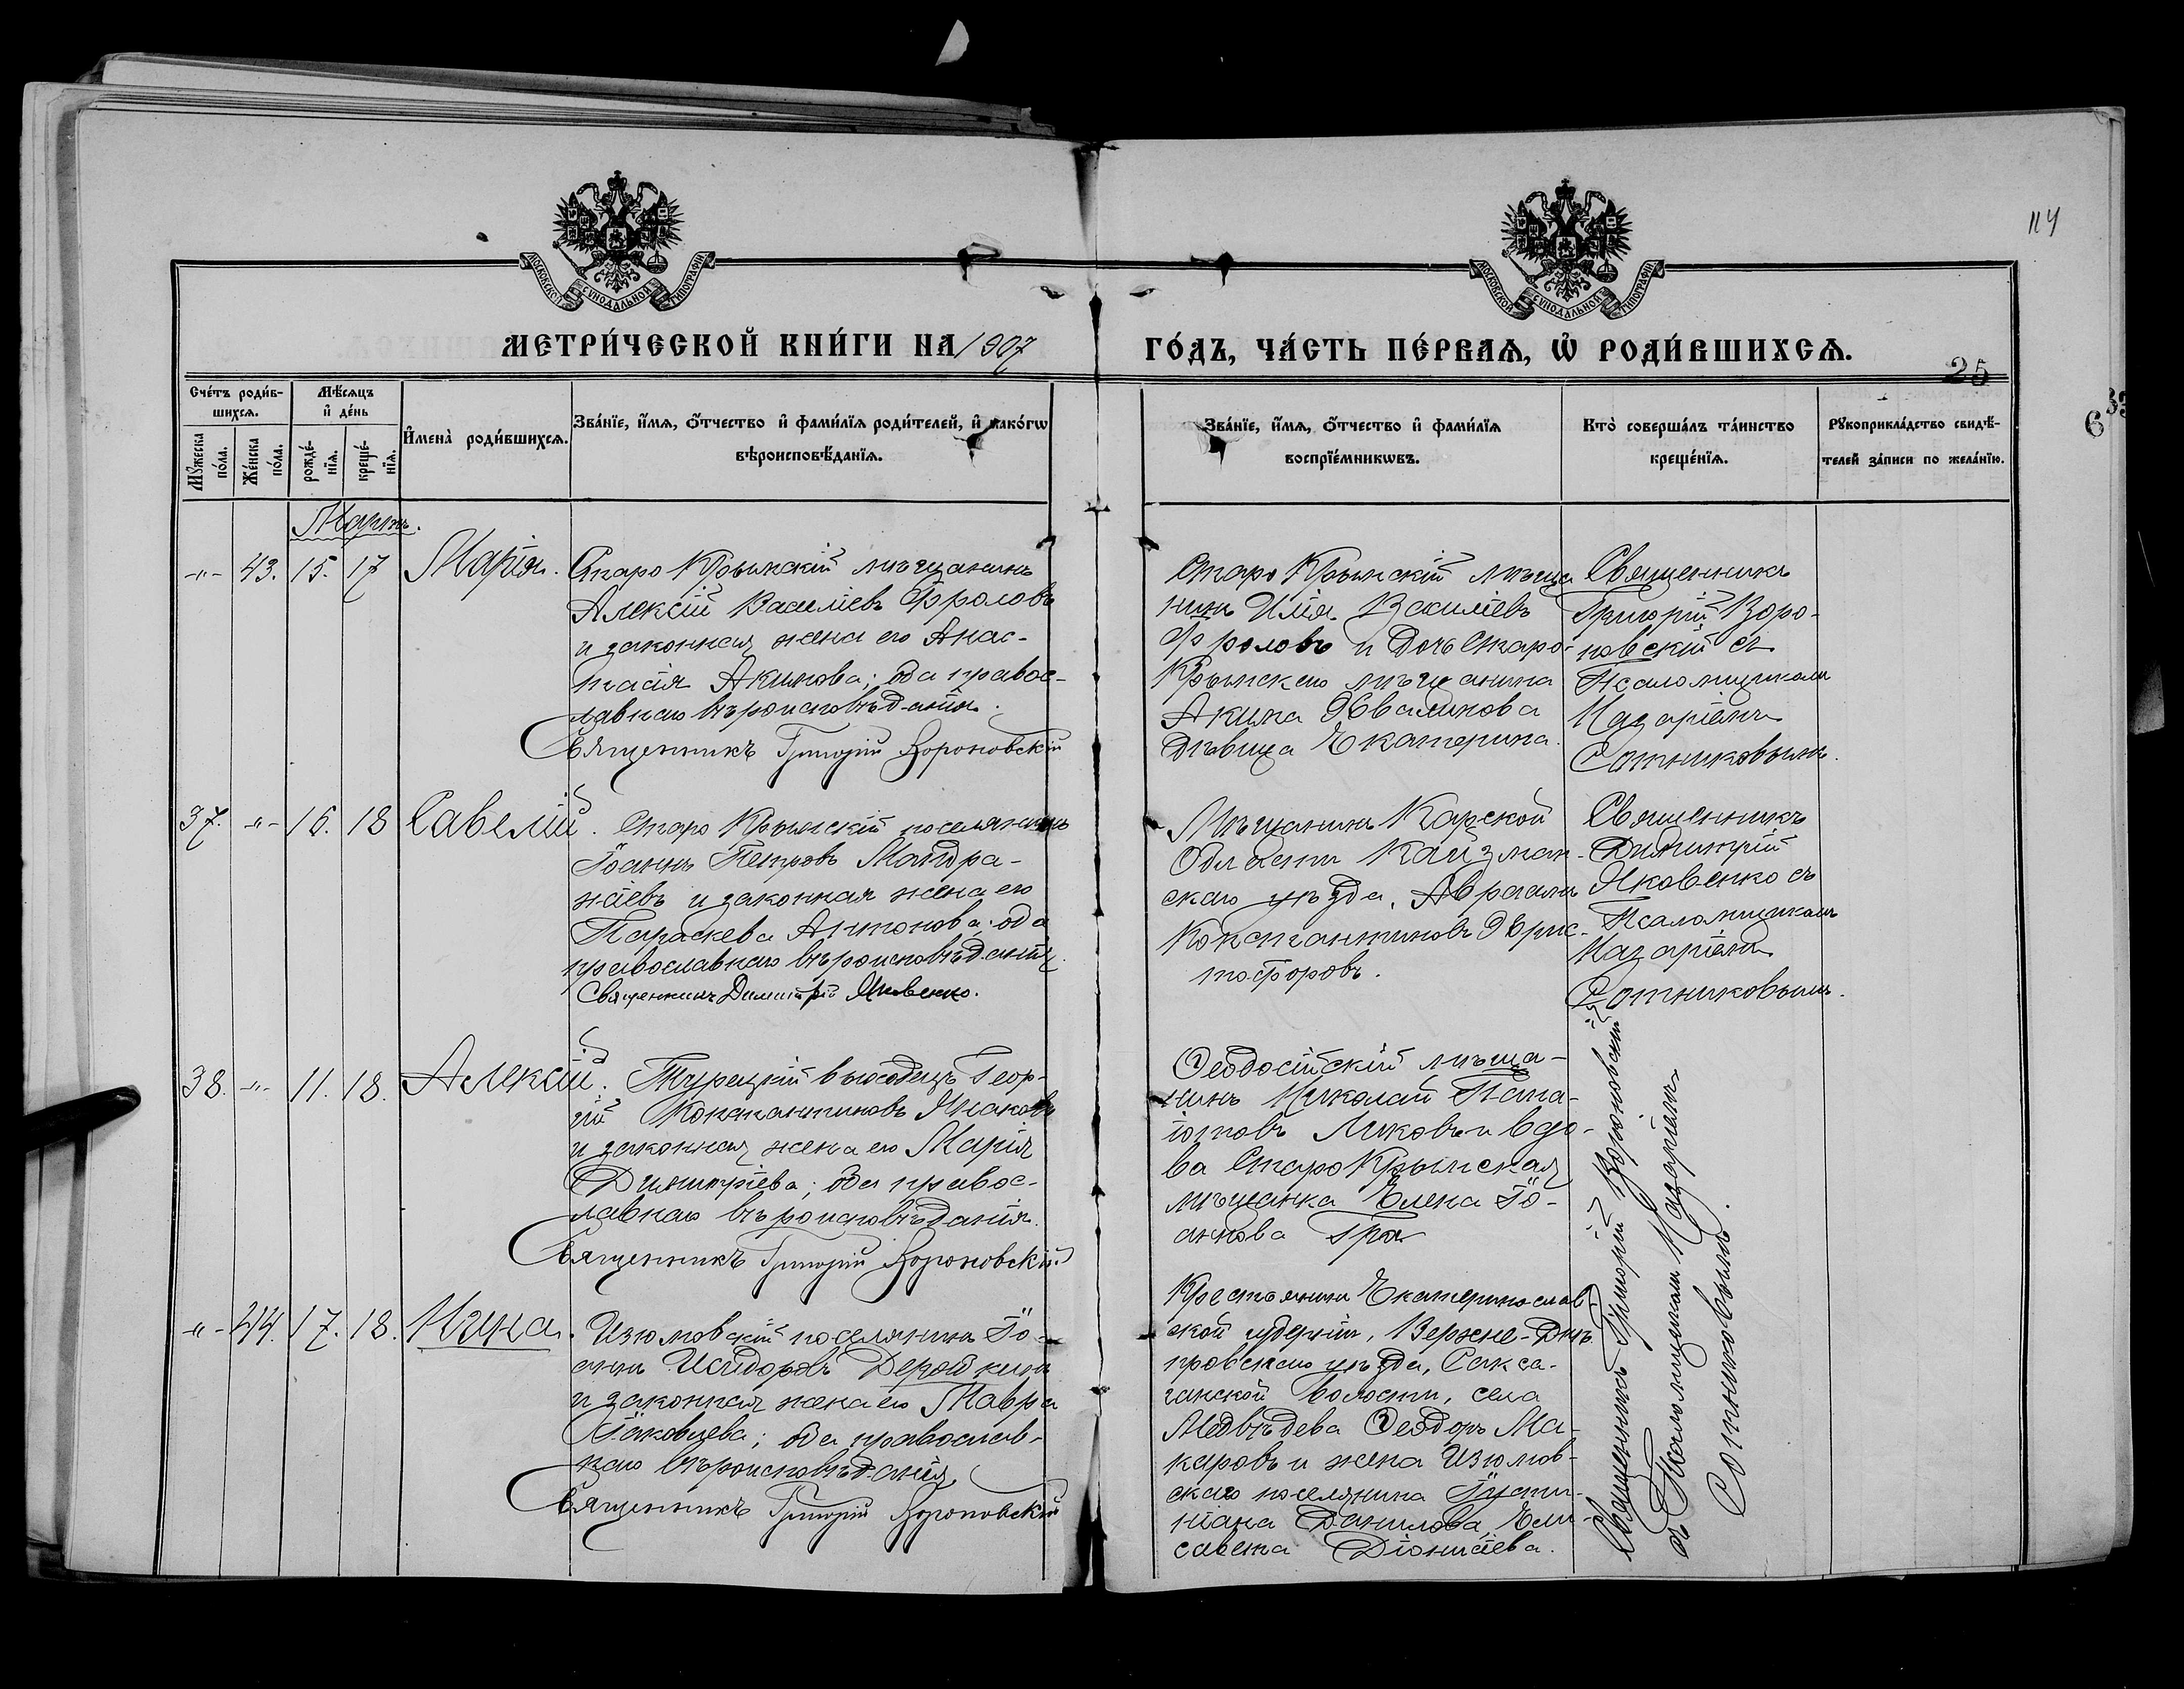 114
МОСКОВСКОЙ СѴНОДАЛЬНОЙ ТИПОГРАФІИ
МОСКОВСКОЙ СѴНОДАЛЬНОЙ ТИПОГРАФІИ
МЕТРИ́ЧЕСКОЙ КНИ́ГИ НА 1907
ГО́ДЪ, ЧА́СТЬ ПЕ́РВАѦ, Ѡ҆ РОДИ́ВШИХСѦ.
25
6
Сче́тъ роди́в-
шихсѧ.
Мѣ́сѧцъ
и҆ де́нь
Мꙋ́жеска
по́ла.
Же́нска
по́ла.
рожде́-
нїѧ.
креще́-
нїѧ.
И҆мена̀ роди́вшихсѧ.
Зва́нїе, и҆́мѧ, ѻ҆́тчество и҆ фами́лїѧ роди́телей, и҆ како́гѡ
вѣроисповѣ́данїѧ.
Зва́нїе, и҆́мѧ, ѻ҆́тчество и҆ фами́лїѧ
воспрїе́мникѡвъ.
Кто̀ соверша́лъ та́инство
креще́нїѧ.
Рꙋкоприкла́дство свидѣ́-
телей за́писи по жела́нїю.
Мартъ.
-"- 43. 15. 17 Марія.
Старо Крымскій мѣщанинъ
Алексій Василіевъ Фроловъ
и законная жена его Анас-
тасія Акимова; оба правос-
лавнаго вѣроисповѣданія.
Священникъ Григорій Вороновскій
Старо Крымскій мѣща
нинъ Илія Василіевъ
Фроловъ и дочь Старо-
Крымскаго мѣщанина
Акима Евалинова
дѣвица Екатерина.
Священникъ
Григорій Воро-
новскій съ
Псаломщикомъ
Назаріемъ
Сотниковымъ.
37. -"- 16. 18 Савелій.
Старо Крымскій поселянинъ
Іоаннъ Петровъ Мандра-
жіевъ и законная жена его
Параскева Антонова; оба
православнаго вѣроисповѣданія.
Священникъ Димитрій Яковенко.
Мѣщанинъ Карской
Области Кайзман-
скаго уѣзда, Авраамъ
Константиновъ Хрис-
тофоровъ.
Священникъ
Димитрій
Яковенко съ
Псаломщикомъ
Назаріемъ
Сотниковымъ.
38. -"- 11. 18. Алексій.
Турецкій выходецъ Геор-
гій Константиновъ Янаковъ
и законная жена его Марія
Димитріева; оба правос-
лавнаго вѣроисповѣданія.
Священникъ Григорій Вороновскій
Ѳеодосійскій мѣща-
нинъ Николай Пана-
іотовъ Ликовъ и вдо-
ва Старо Крымская
мѣщанка Елена Іо-
аннова
-"- 44. 17. 18. Нина.
Изюмовскій поселянинъ Іо-
аннъ Исидоровъ
и законная жена его Мавра
Іаковлева; оба православ-
наго вѣроисповѣданія.
Священникъ Григорій Вороновскій
Крестьянинъ Екатеринослав-
ской губерніи, Верхне-Днѣ
провскаго уѣзда, Сакса-
ганской волости, села
Медвѣдева Ѳеодоръ Ма-
каровъ и жена Изюмов-
скаго поселянина Іусти-
ніана Данилова, Ели-
савета Діонисіева.
Священникъ Григорій Вороновскій
съ Псаломщикомъ Назаріемъ
Сотниковымъ.